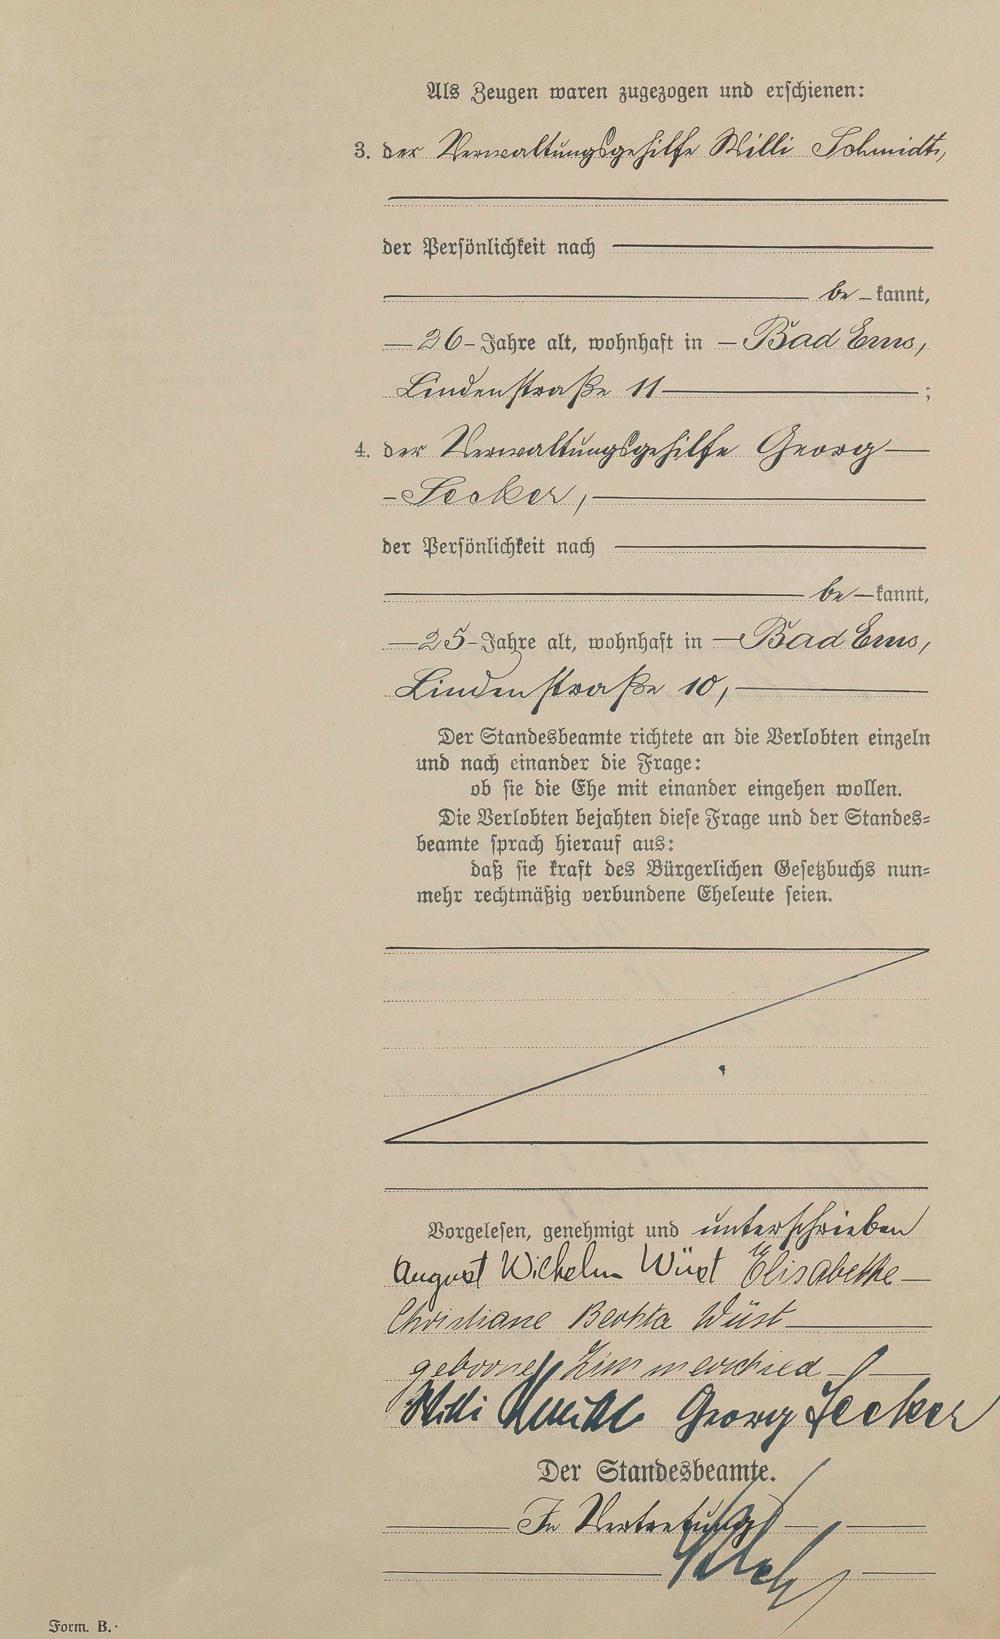 Als Zeugen waren zugezogen und erschienen:
3. der Verwaltungsgehilfe Willi Schmidt,
der Persönlichkeit nach
be – kannt,
– 26 – Jahre alt, wohnhaft in – Bad Ems,
Lindenstraße 11 – ;
4. der Verwaltungsgehilfe Georg –
– Seeker, –
der Persönlichkeit nach
be – kannt,
– 25 – Jahre alt, wohnhaft in – Bad Ems,
Lindenstraße 10, –
Der Standesbeamte richtete an die Verlobten einzeln
und nach einander die Frage:
ob sie die Ehe mit einander eingehen wollen.
Die Verlobten bejahten diese Frage und der Standes-
beamte sprach hierauf aus:
daß sie kraft des Bürgerlichen Gesetzbuchs nun-
mehr rechtmäßig verbundene Eheleute seien.
Vorgelesen, genehmigt und unterschrieben
August Wilhelm Wüst Elisabethe –
Christiane Bertha Wüst –
geborne Zimmerschied –
Willi Schmidt Georg Seeker
Der Standesbeamte.
In Vertretung
Form. B.